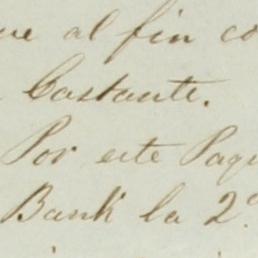 ue al fin co
Bastante.
Por este Paq
Bank la 2ª